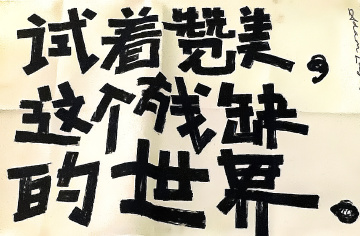 试着赞美，
这个残缺
的世界。